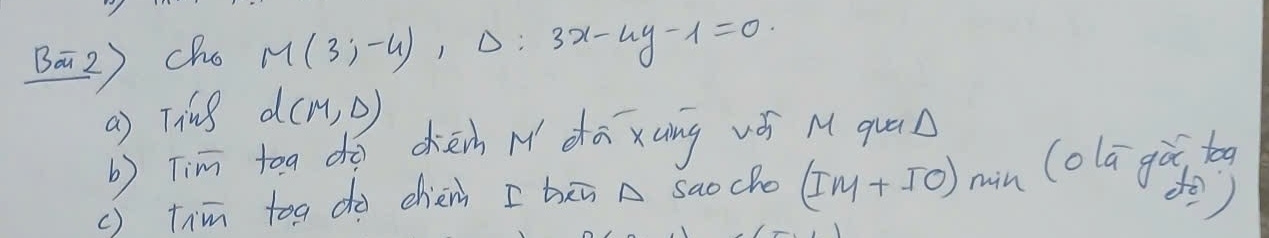 Bài 2) Cho M(3;-4), Δ: 3x-4y-1=0.
a) Tính d(M,Δ)
b) Tìm toạ độ điểm M' đối xứng với M qua Δ
c) Tìm toạ độ điểm I trên Δ sao cho (IM+IO) min (O là gốc toạ độ)